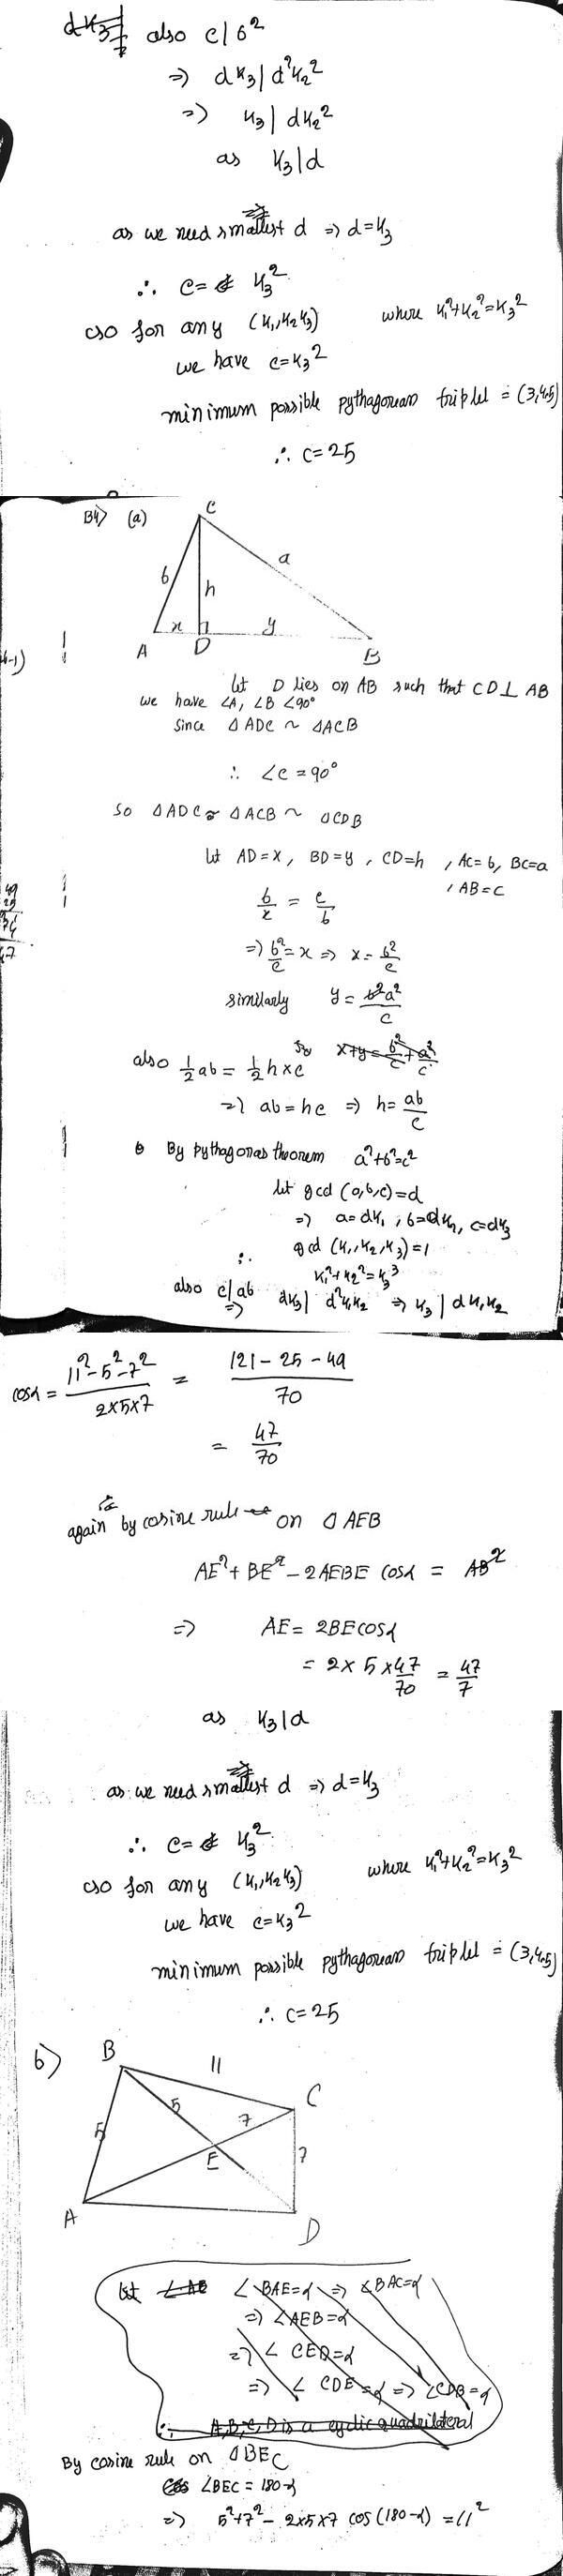 also c|b²
⇒ dk₃|d²k₂²
⇒) k₃|dk₂²
as k₃|d
as we need smallest d ⇒ d=k₃
∴ c= k₃²
so for any (k₁,k₂k₃) where k₁²+k₂²=k₃²
we have c=k₃²
minimum possible pythagorean triplet = (3,4,5)
∴ c=25
B4) (a)
C
b
h
a
x
y
A
D
B
4-1)
let D lies on AB such that CD⊥AB
we have ∠A, ∠B <90°
since △ADC ~ △ACB
∴ ∠C=90°
so △ADC ~ △ACB ~ △CDB
let AD=x, BD=y, CD=h, AC=b, BC=a
, AB=c
b/x = c/b
⇒) b²/c = x ⇒ x = b²/c
similarly y = a²/c
also ½ab = ½h×c x+y = b²/c + a²/c
⇒) ab=hc ⇒ h= ab/c
By pythagoras theorem a²+b²=c²
let gcd (a,b,c)=d
⇒) a=dk₁, b=dk₂, c=dk₃
∴ gcd (k₁,k₂,k₃)=1
k₁²+k₂²=k₃³
also c|ab
⇒ dk₃| d²k₁k₂ ⇒ k₃|dk₁k₂
cosα = (11²-5²-7²)/(2×5×7) = (121-25-49)/70
= 47/70
again by cosine rule on △AEB
AE²+BE²-2AEBE cosα = AB²
⇒) AE= 2BEcosα
= 2×5×47/70 = 47/7
as k₃|d
as we need smallest d ⇒ d=k₃
∴ c= k₃²
so for any (k₁,k₂k₃) where k₁²+k₂²=k₃²
we have c=k₃²
minimum possible pythagorean triplet = (3,4,5)
∴ c=25
b)
B
11
C
5
5
7
7
E
A
D
let ∠AE ∠BAE=α ⇒ ∠BAC=α
⇒ ∠AEB=α
⇒) ∠CED=α
⇒) ∠CDE=α ⇒ ∠CDB=α
∴ A,B,C,D is a cyclic quadrilateral
By cosine rule on △BEC
∠BEC = 180-α
⇒) 5²+7²-2×5×7 cos(180-α) = 11²